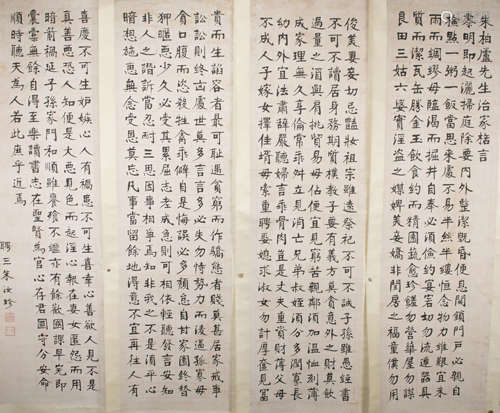 朱柏廬先生治家格言
黎明即起灑掃庭除要內外整潔既昏便息關鎖門戶必親自
檢點一粥一飯當思來處不易半絲半縷恆念物力維艱宜未
雨而綢繆毋臨渴而掘井自奉必須儉約宴客切勿流連器具
質而潔瓦缶勝金玉飲食約而精園蔬愈珍饈勿營華屋勿謀
良田三姑六婆實淫盜之媒婢美妾嬌非閨房之福童僕勿用
俊美妻妾切忌豔妝祖宗雖遠祭祀不可不誠子孫雖愚經書
不可不讀居身務期質樸教子要有義方莫貪意外之財莫飲
過量之酒與肩挑貿易毋佔便宜見窮苦親鄰須加溫恤刻薄
成家理無久享倫常乖舛立見消亡兄弟叔姪須分多潤寡長
幼內外宜法肅辭嚴聽婦言乖骨肉豈是丈夫重資財薄父母
不成人子嫁女擇佳壻毋索重聘娶媳求淑女勿計厚奩見富
貴而生諂容者最可恥遇貧窮而作驕態者賤莫甚居家戒爭
訟訟則終凶處世莫多言言多必失勿恃勢力而凌逼孤寡毋
貪口腹而恣殺牲禽乖僻自是悔誤必多頹惰自甘家園終替
狎暱惡少久必受其累屈志老成急則可相依輕聽發言安知
非人之譖訴當忍耐三思因事相爭焉知非我之不是須平心
暗想施惠無念受恩莫忘凡事當留餘地得意不宜再往人有
喜慶不可生妒嫉心人有禍患不可生喜幸心善欲人見不是
真善惡恐人知便是大惡見色而起淫心報在妻女匿怨而用
暗箭禍延子孫家門和順雖饔飧不繼亦有餘歡國課早完即
囊橐無餘自得至樂讀書志在聖賢為官心存君國守分安命
順時聽天為人若此庶乎近焉
聘三朱汝珍